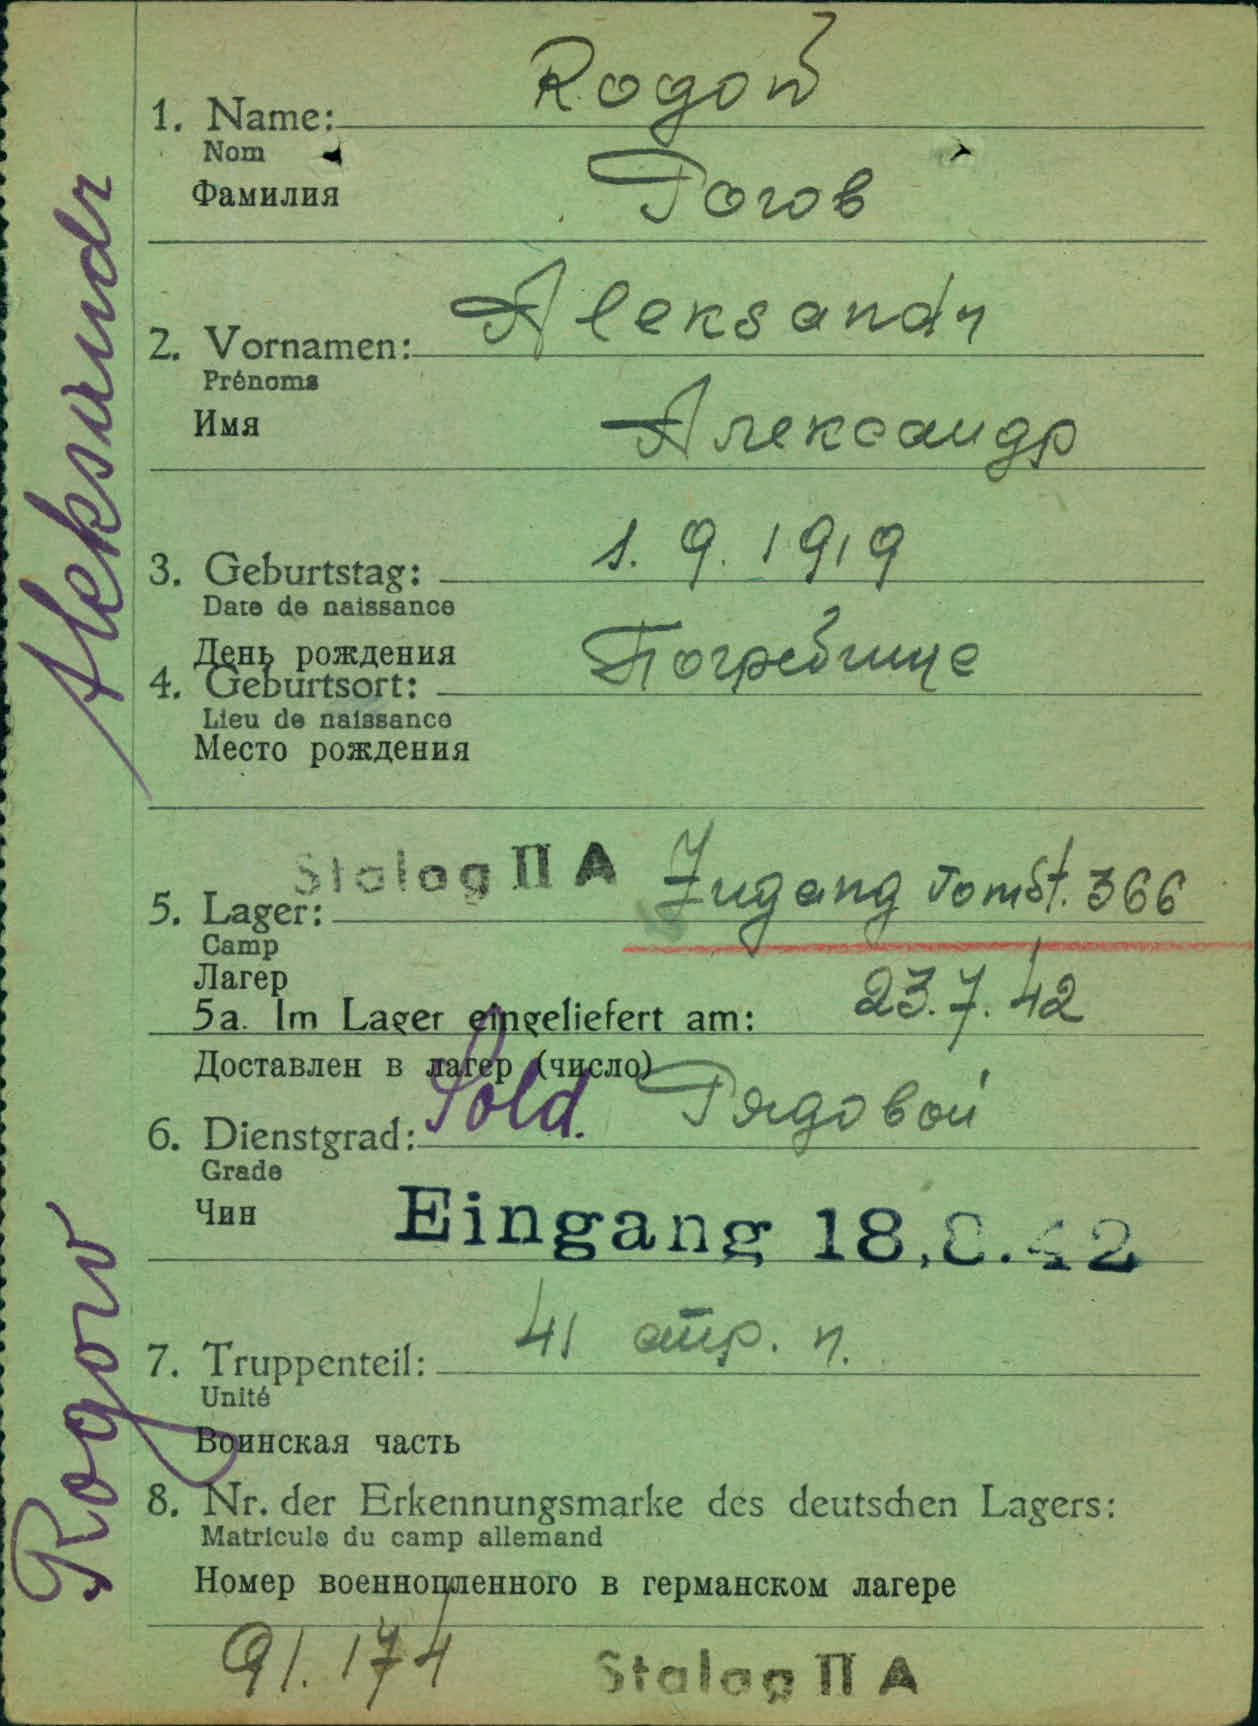 Rogow
1. Name:
Nom
Фамилия
Рогов
Aleksandr
2. Vornamen:
Prénoms
Имя
Александр
1. 9. 1919
3. Geburtstag:
Date de naissance
День рождения
Погребище
4. Geburtsort:
Lieu de naissance
Место рождения
Stalag II A Zugang vom St. 366
5. Lager:
Camp
Лагер
5a. Im Lager eingeliefert am: 23.7.42
Доставлен в лагер (число)
6. Dienstgrad: Sold. Рядовой
Grade
Чин
Eingang 18.8.42
41 стр. п.
7. Truppenteil:
Unité
Воинская часть
8. Nr. der Erkennungsmarke des deutschen Lagers:
Matricule du camp allemand
Номер военнопленного в германском лагере
91.174 Stalag II A
Rogow Aleksandr